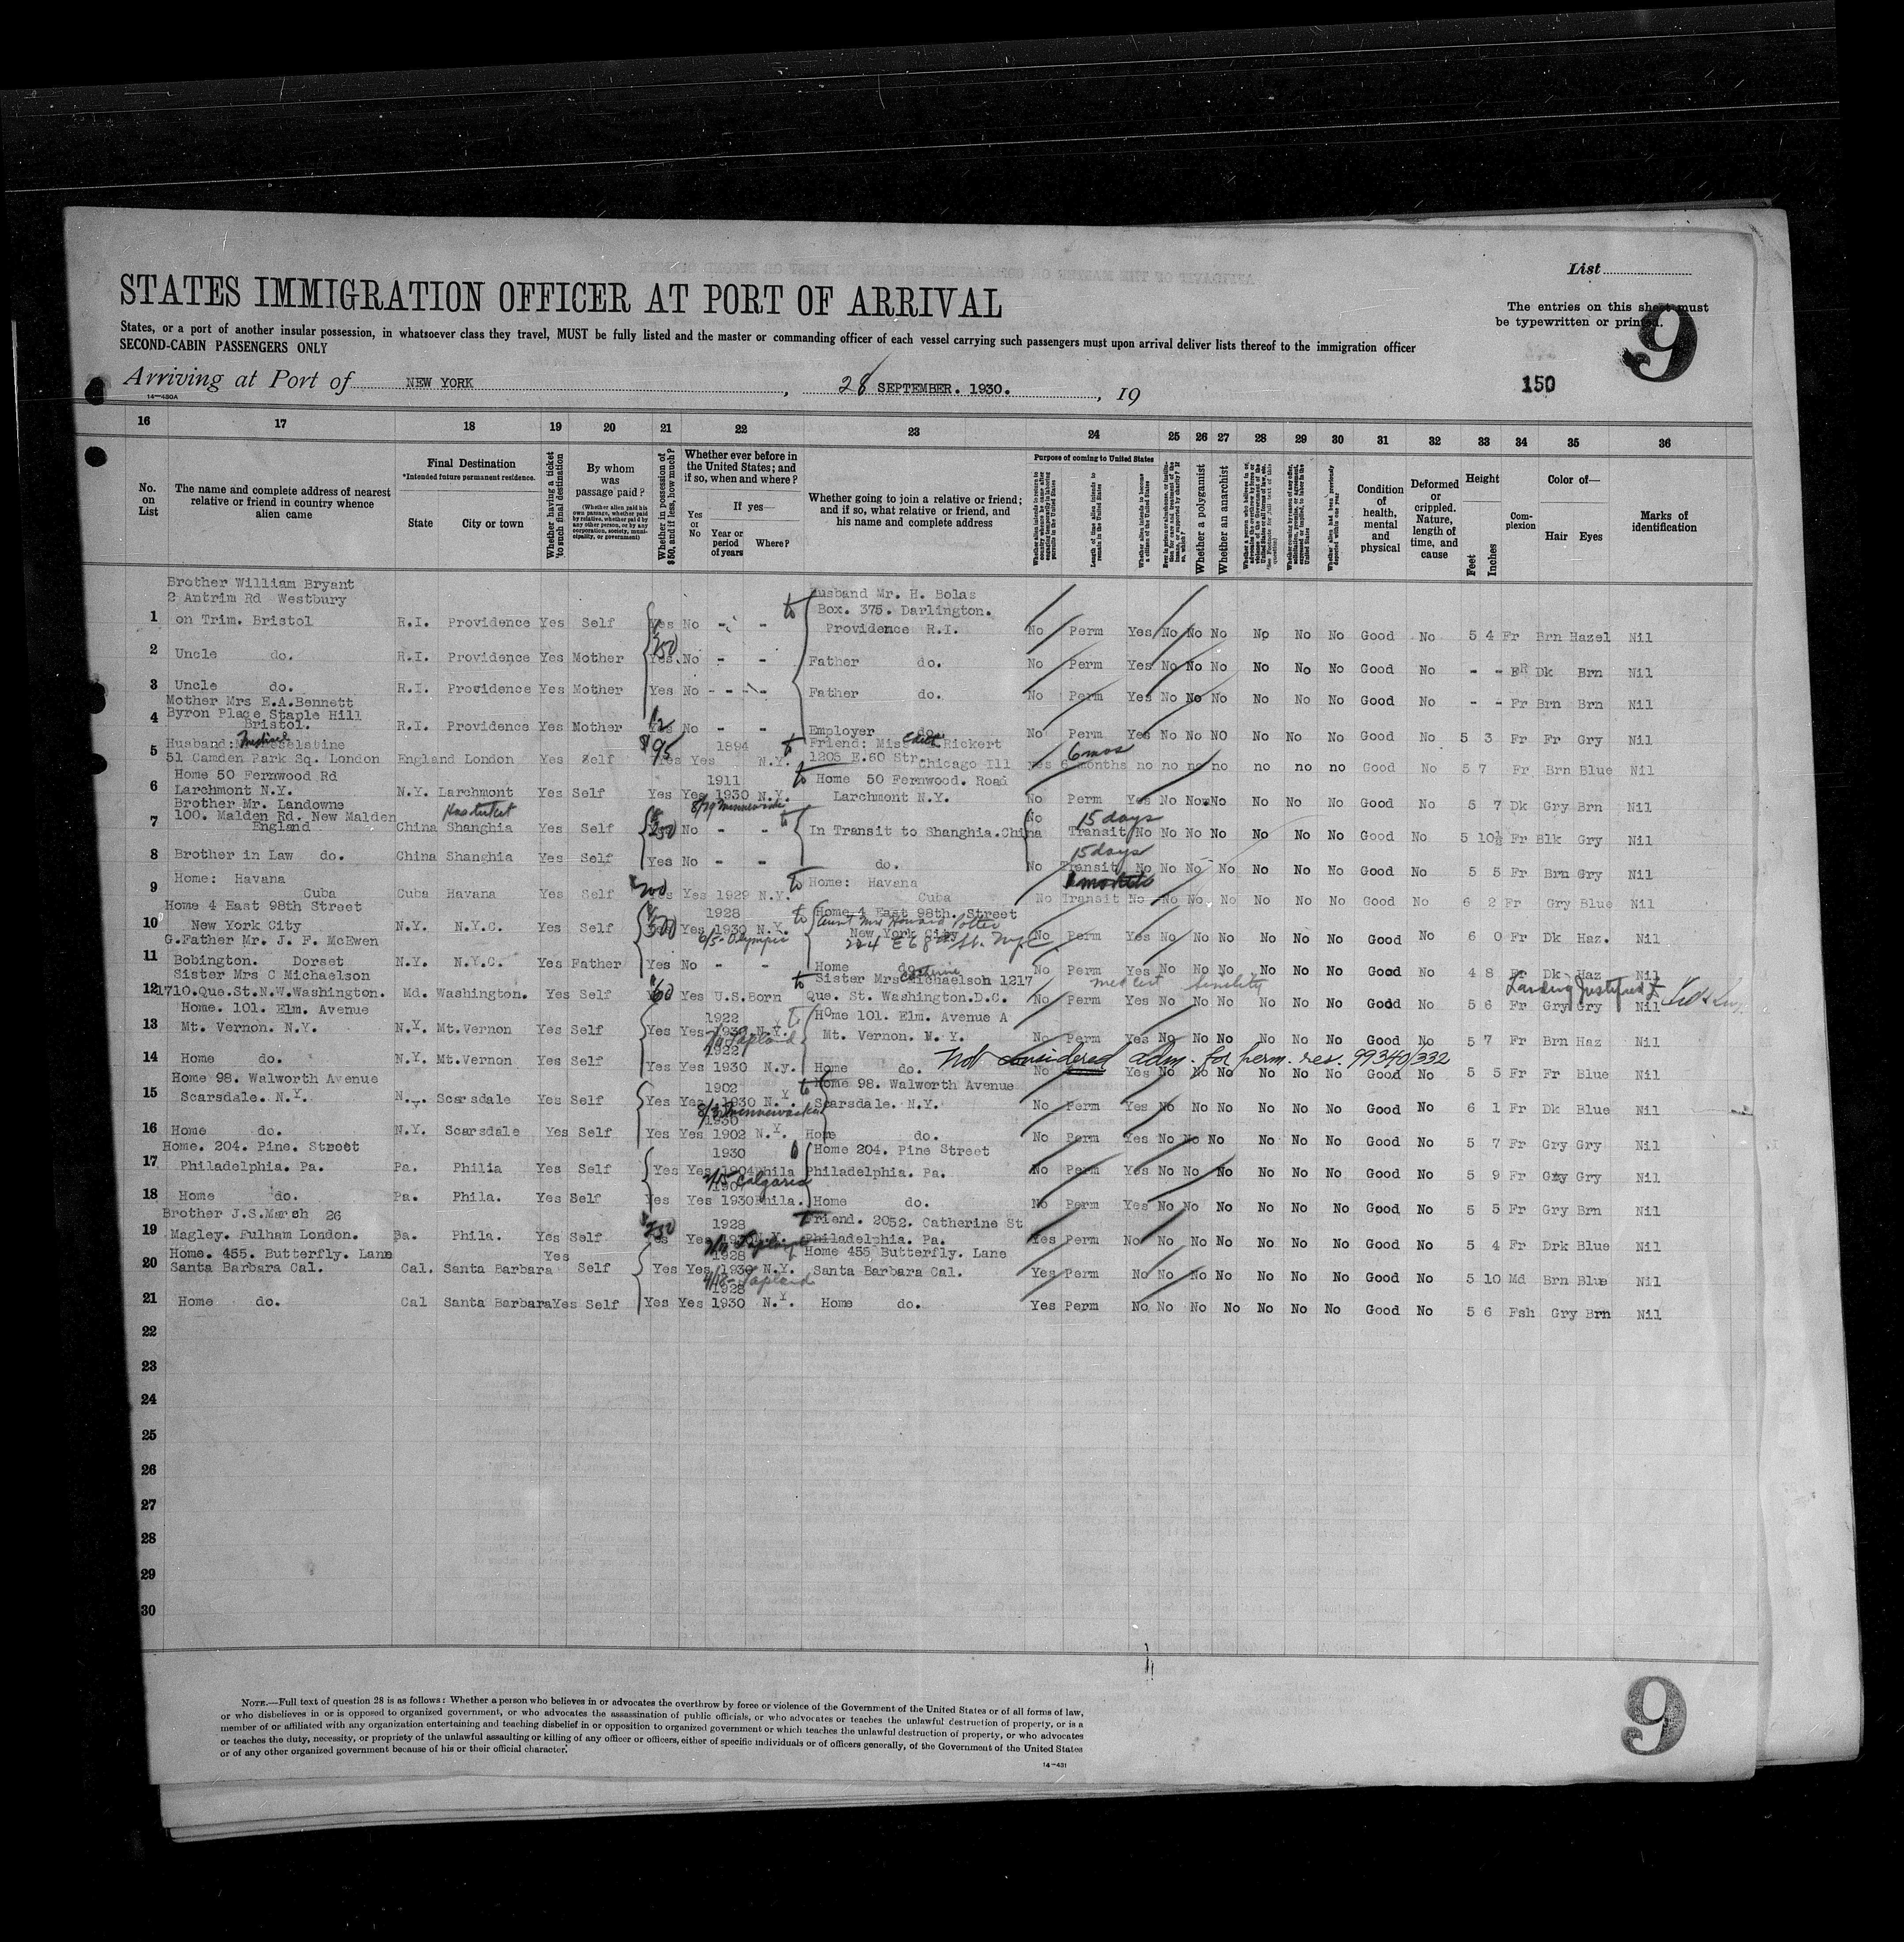 List
STATES IMMIGRATION OFFICER AT PORT OF ARRIVAL
The entries on this sheet must
be typewritten or printed.
9
States, or a port of another insular possession, in whatsoever class they travel, MUST be fully listed and the master or commanding officer of each vessel carrying such passengers must upon arrival deliver lists thereof to the immigration officer
SECOND-CABIN PASSENGERS ONLY
150
Arriving at Port of NEW YORK, 28 SEPTEMBER. 1930., 19
14—480A
16 17 18 19 20 21 22 23 24 25 26 27 28 29 30 31 32 33 34 35 36
No. on List
The name and complete address of nearest relative or friend in country whence alien came
Final Destination
*Intended future permanent residence.
State City or town
Whether having a ticket to such final destination
By whom was passage paid?
(Whether alien paid his own passage, whether paid by relative, whether paid by any other person, or by any corporation, society, municipality, or government)
Whether in possession of $50, and if less, how much?
Whether ever before in the United States; and if so, when and where?
Yes or No
If yes—
Year or period of years
Where?
Whether going to join a relative or friend; and if so, what relative or friend, and his name and complete address
Purpose of coming to United States
Length of time alien intends to remain in the United States
Whether alien intends to become a citizen of the United States
Whether a polygamist
Whether an anarchist
Condition of health, mental and physical
Deformed or crippled. Nature, length of time, and cause
Height
Feet Inches
Complexion
Color of—
Hair Eyes
Marks of identification
Brother William Bryant
2 Antrim Rd Westbury
Husband Mr. H. Bolas
Box. 375. Darlington.
1 on Trim. Bristol R.I. Providence Yes Self Yes No - - to Providence R.I. No Perm Yes No No No No No No Good No 5 4 Fr Brn Hazel Nil
2 Uncle do. R.I. Providence Yes Mother Yes. No - - Father do. No Perm Yes No No No No No No Good No - - FR Dk Brn Nil
3 Uncle do. R.I. Providence Yes Mother Yes No - - - - Father do. No Perm Yes No No No No No No Good No - - Fr Brn Brn Nil
Mother Mrs E.A.Bennett
Byron Place Staple Hill
4 Bristol. R.I. Providence Yes Mother No - - Employer do. No Perm Yes No No NO No No No Good No 5 3 Fr Fr Gry Nil
Husband: $95 1894 to Friend: Miss Edith Rickert 6 mos
5 51 Camden Park Sq. London England London Yes Self Yes Yes N.Y. 1203 E.60 Str. Chicago Ill yes 6 months no no no no no no no Good No 5 7 Fr Brn Blue Nil
Home 50 Fernwood Rd 1911 to Home 50 Fernwood. Road
6 Larchmont N.Y. N.Y. Larchmont Yes Self Yes Yes 1930 N.Y. Larchmont N.Y. No Perm Yes No No No No No No Good No 5 7 Dk Gry Brn Nil
8/29 Minnewaska
Brother Mr. Landowne
100. Malden Rd. New Malden Has ticket to 15 days
7 England China Shanghia Yes Self 250 No - - In Transit to Shanghia.China No Transit No No No No No No No Good No 5 10½ Fr Blk Gry Nil
15 days
8 Brother in Law do. China Shanghia Yes Self Yes No - - do. No Transit No No No No No No No Good No 5 5 Fr Brn Gry Nil
Home: Havana to Home: Havana
9 Cuba Cuba Havana Yes Self 200 Yes 1929 N.Y. Cuba No Transit No No No No No No No Good No 6 2 Fr Gry Blue Nil
Home 4 East 98th Street 1928 to Home 4 East 98th. Street
Aunt Mrs Howard Potter
10 New York City N.Y. N.Y.C. Yes Self Yes 1930 N.Y. New York City No Perm Yes No No No No No No Good No 6 0 Fr Dk Haz. Nil
6/5- Olympic 224 E 68th St. NYC
G.Father Mr. J. F. McEwen
11 Bobington. Dorset N.Y. N.Y.C. Yes Father Yes No - - Home do. No Perm Yes No No No No No No Good No 4 8 Fr Dk Haz Nil
Sister Mrs C Michaelson to Sister Mrs Michaelson 1217 med cert Senility Landing Justified
12 1710.Que.St.N.W.Washington. Md. Washington. Yes Self 60 Yes U.S.Born Que. St. Washington.D.C. No Perm Yes No No No No No No Good No 5 6 Fr Gry Gry Nil
Home. 101. Elm. Avenue 1922 Home 101. Elm. Avenue A
13 Mt. Vernon. N.Y. N.Y. Mt.Vernon Yes Self Yes Yes 1930 N.Y. Mt. Vernon. N.Y. No Perm Yes No No No No No No Good No 5 7 Fr Brn Haz Nil
Lapland
1922 Not considered adm. for perm. res. 99340/332
14 Home do. N.Y. Mt.Vernon Yes Self Yes Yes 1930 N.y. Home do. No Yes No No No No No No Good No 5 5 Fr Fr Blue Nil
Home 98. Walworth Avenue 1902 to Home 98. Walworth Avenue
15 Scarsdale. N.Y. N.Y. Scarsdale Yes Self Yes Yes 1930 N.Y. Scarsdale. N.Y. No Perm Yes No No No No No No Good No 6 1 Fr Dk Blue Nil
Minnewaska
1930
16 Home do. N.Y. Scarsdale Yes Self Yes Yes 1902 N.Y. Home do. No Perm Yes No No No No No No Good No 5 7 Fr Gry Gry Nil
Home. 204. Pine. Street 1930 Home 204. Pine Street
17 Philadelphia. Pa. Pa. Philia Yes Self Yes Yes 1904 Phila Philadelphia. Pa. No Perm Yes No No No No No No Good No 5 9 Fr Gry Gry Nil
Calgaric
18 Home do. Pa. Phila. Yes Self Yes Yes 1930 Phila. Home do. No Perm Yes No No No No No No Good No 5 5 Fr Gry Brn Nil
Brother J.S.March 26 250 1928 Friend. 2052. Catherine St
19 Magley. Fulham London. Pa. Phila. Yes Self Yes Yes 1930 N.Y. Philadelphia. Pa. Yes Perm No No No No No No No Good No 5 4 Fr Drk Blue Nil
Lapland
Home. 455. Butterfly. Lane Yes 1928 Home 455 Butterfly. Lane
20 Santa Barbara Cal. Cal. Santa Barbara Self Yes Yes 1930 N.Y. Santa Barbara Cal. Yes Perm No No No No No No No Good No 5 10 Md Brn Blue Nil
4/18- Lapland
1928
21 Home do. Cal Santa Barbara Yes Self Yes Yes 1930 N.Y. Home do. Yes Perm No No No No No No No Good No 5 6 Fsh Gry Brn Nil
22
23
24
25
26
27
28
29
30
NOTE.—Full text of question 28 is as follows: Whether a person who believes in or advocates the overthrow by force or violence of the Government of the United States or of all forms of law,
or who disbelieves in or is opposed to organized government, or who advocates the assassination of public officials, or who advocates or teaches the unlawful destruction of property, or is a
member of or affiliated with any organization entertaining and teaching disbelief in or opposition to organized government or which teaches the unlawful destruction of property, or who advocates
or teaches the duty, necessity, or propriety of the unlawful assaulting or killing of any officer or officers, either of specific individuals or of officers generally, of the Government of the United States
or of any other organized government because of his or their official character.
14—431
9